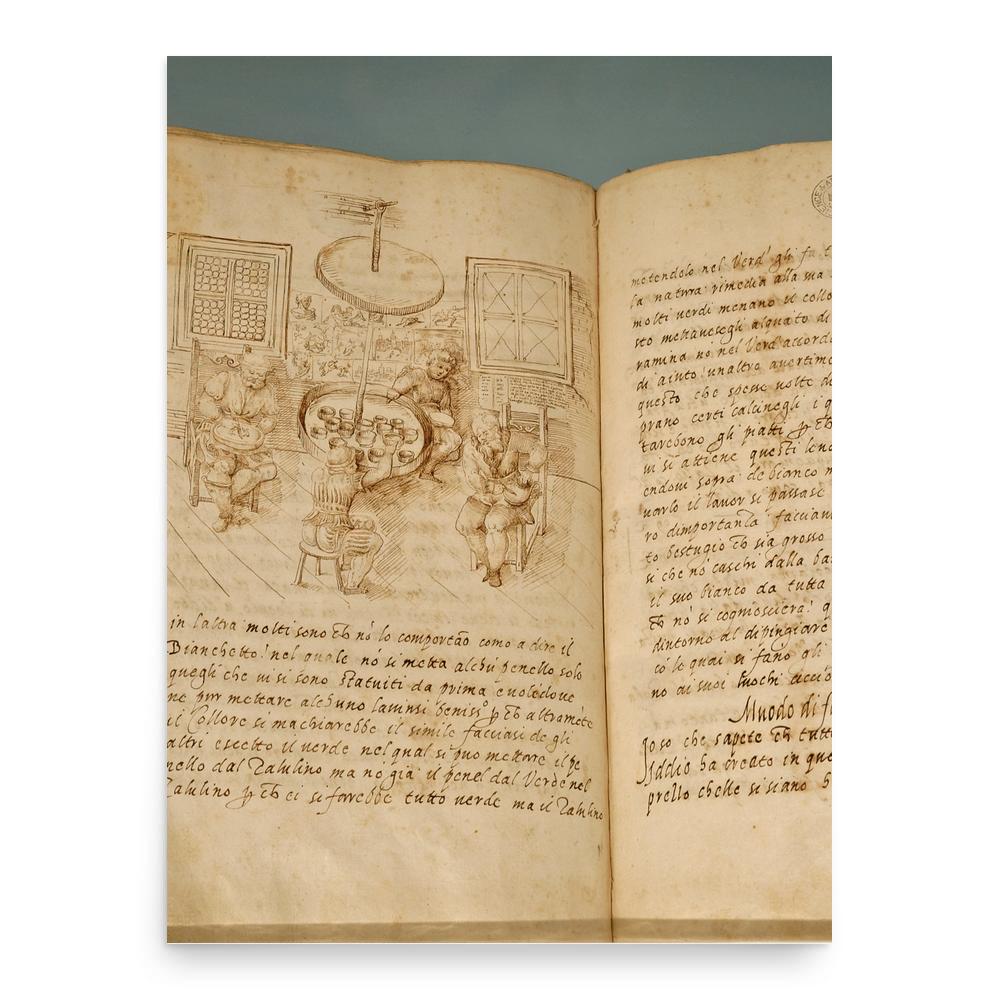 in laltra molti sono ch no lo comportao como a dire il
Bianchetto! nel quale no si metta alchu penello solo
quegli che vi si sono statuiti da prima e volédove
ne pur mettare alchuno lavinsi beniss° p ch altraméte
il Collore si machiarebbe il simile facciasi de gli
altri escetto il verde nel qual si puo mettare il pe
nello dal Zalulino ma no gia il penel dal Verde nel
Zalulino p ch ci si farebbe tutto verde ma il Zalulino
metendolo nel Verd' gli fa
la natura rimedia alla sua
molti verdi menano il collo
sto mettavesegli alquato di
ramina no nel Verd' accord
di aiuto! unaltro avertime
questo che spesse volte d
prano certi calcinegli i q
tarebono gli piatti p ch
vi si attiene questi
endovi sopra de bianco
varlo il lavor si passase
ro dimportanza facciam
to bestugio ch sia grosso
si che no caschi dalla ba
il suo bianco da tutta
ch no si cognioscera! q
dintorno al dipingiare
co le quai si fano gli
no ai suoi luochi accio
Muodo di f
Ioso che sapete ch tutt
Iddio ha creato in que
prello chelle si siano